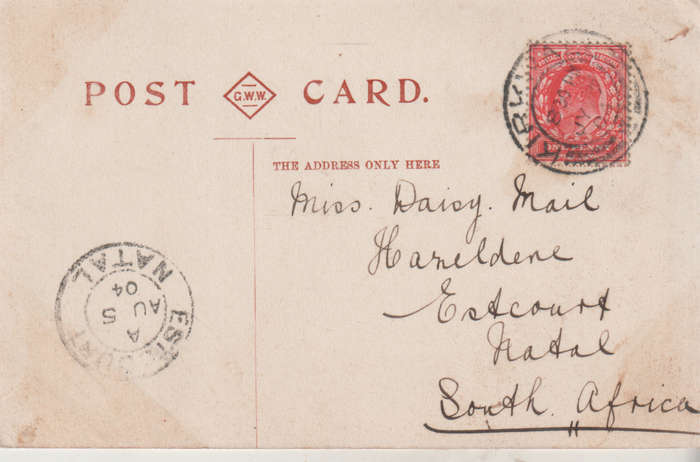 POST G.W.W. CARD.
THE ADDRESS ONLY HERE
Miss. Daisy. Mail
Hazeldene
Estcourt
Natal
South. Africa
ONE PENNY
NATAL
A
AU 5
04